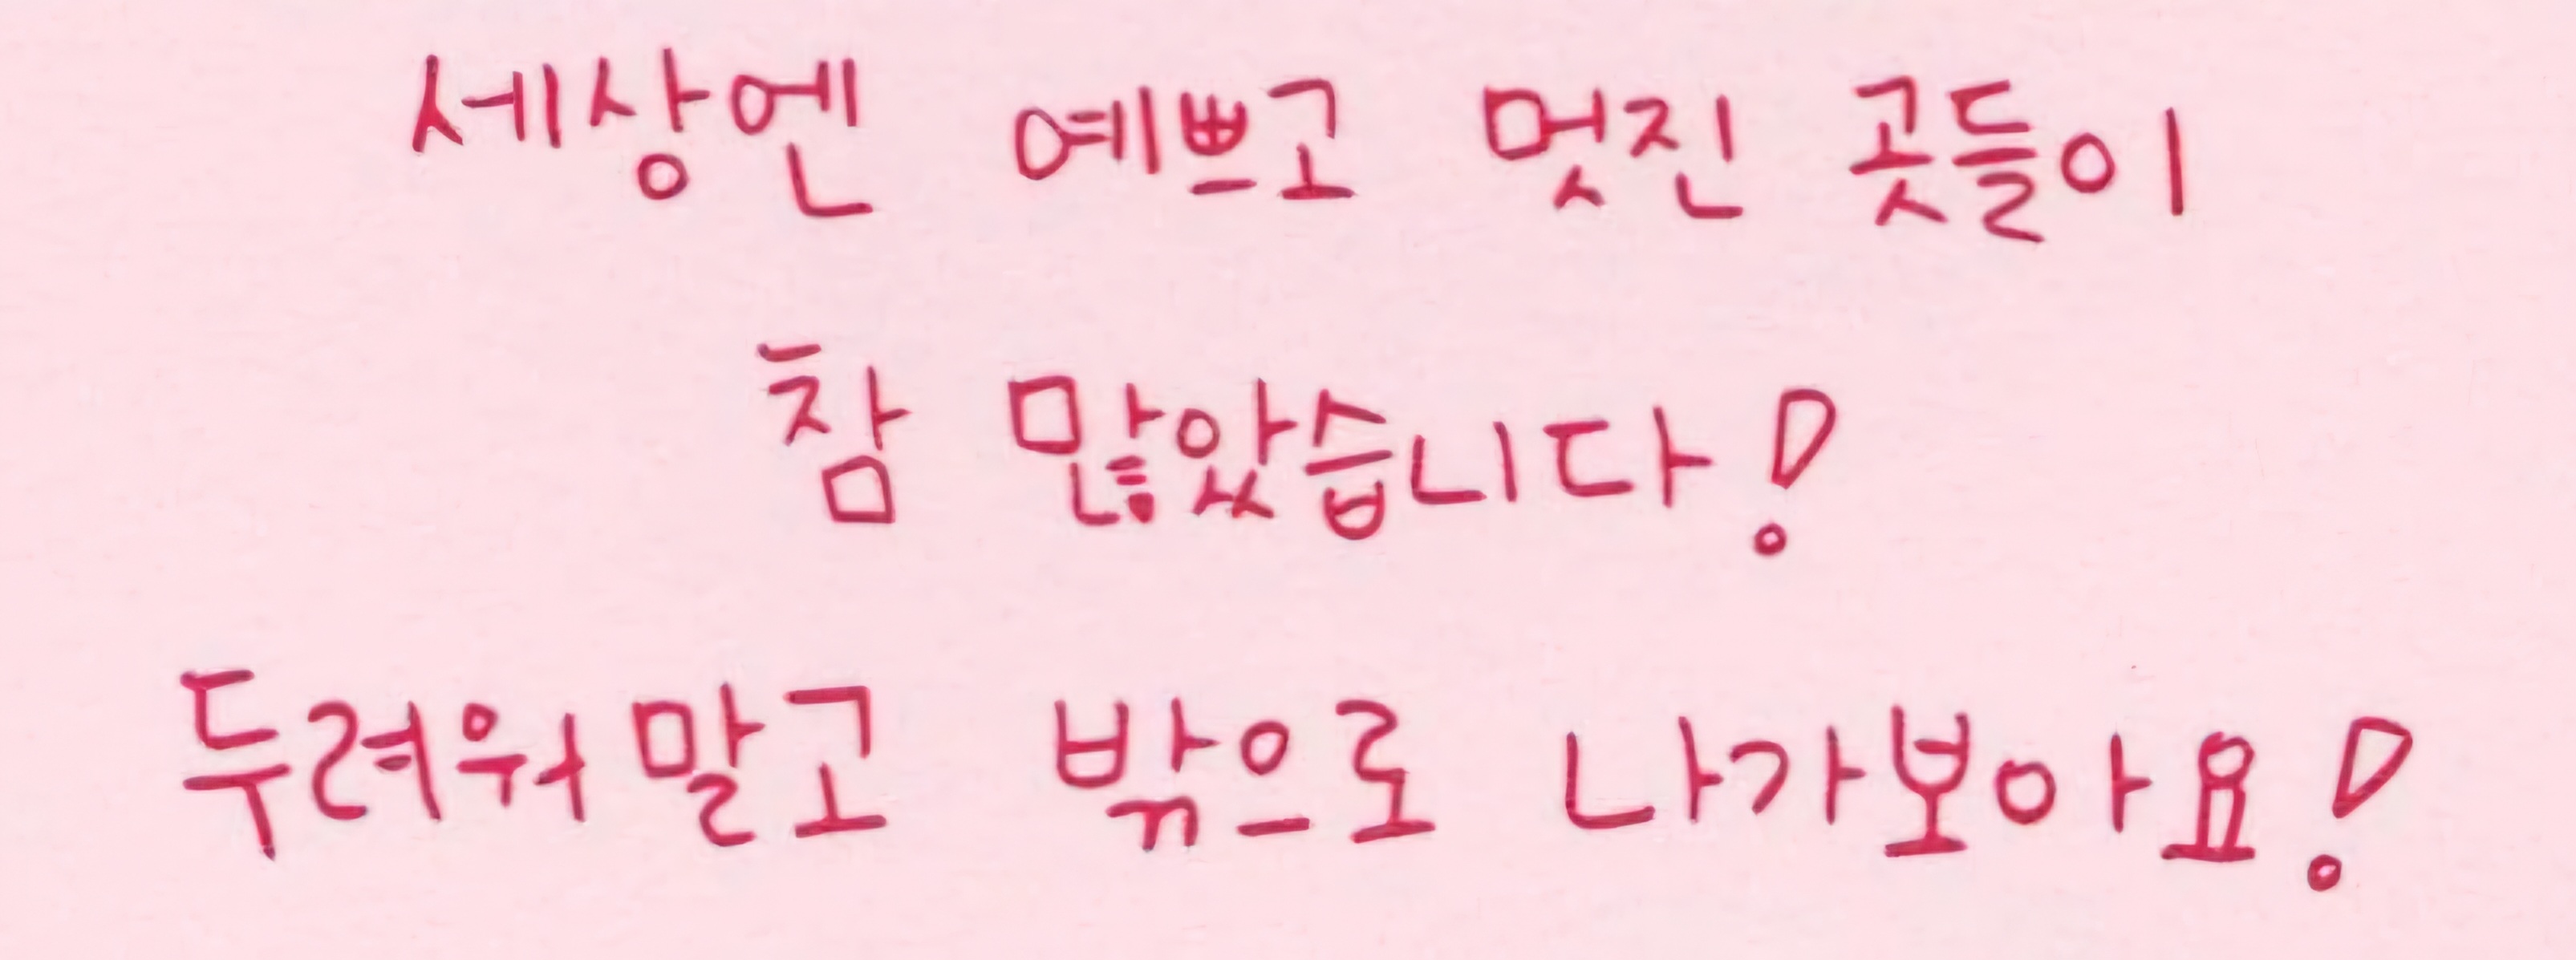 세상엔 예쁘고 멋진 곳들이
참 많았습니다!
두려워말고 밖으로 나가보아요!